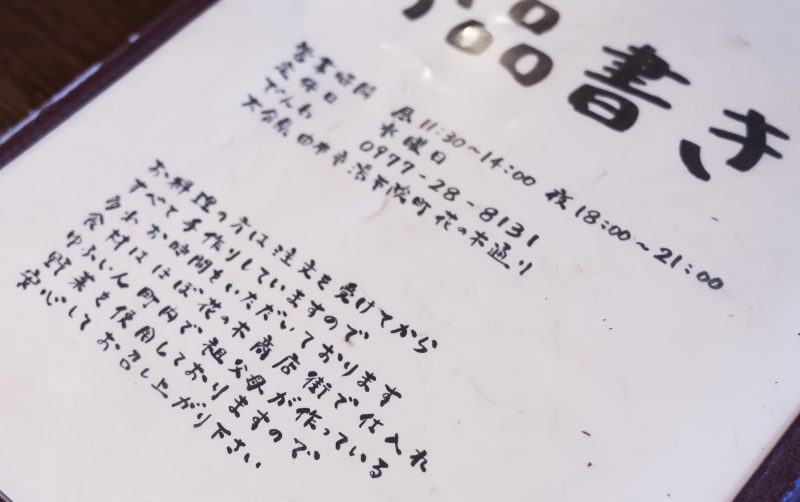 品書き
営業時間 昼11:30～14:00 夜18:00～21:00
定休日 水曜日
でんわ 0977-28-8131
大分県由布市湯布院町花の木通り
お料理の方は注文を受けてから
すべて手作りしていますので
多少お時間をいただいております
食材はほぼ花の木商店街で仕入れ
ゆふいん町内で祖父母が作っている
野菜を使用しておりますので
安心してお召し上がり下さい